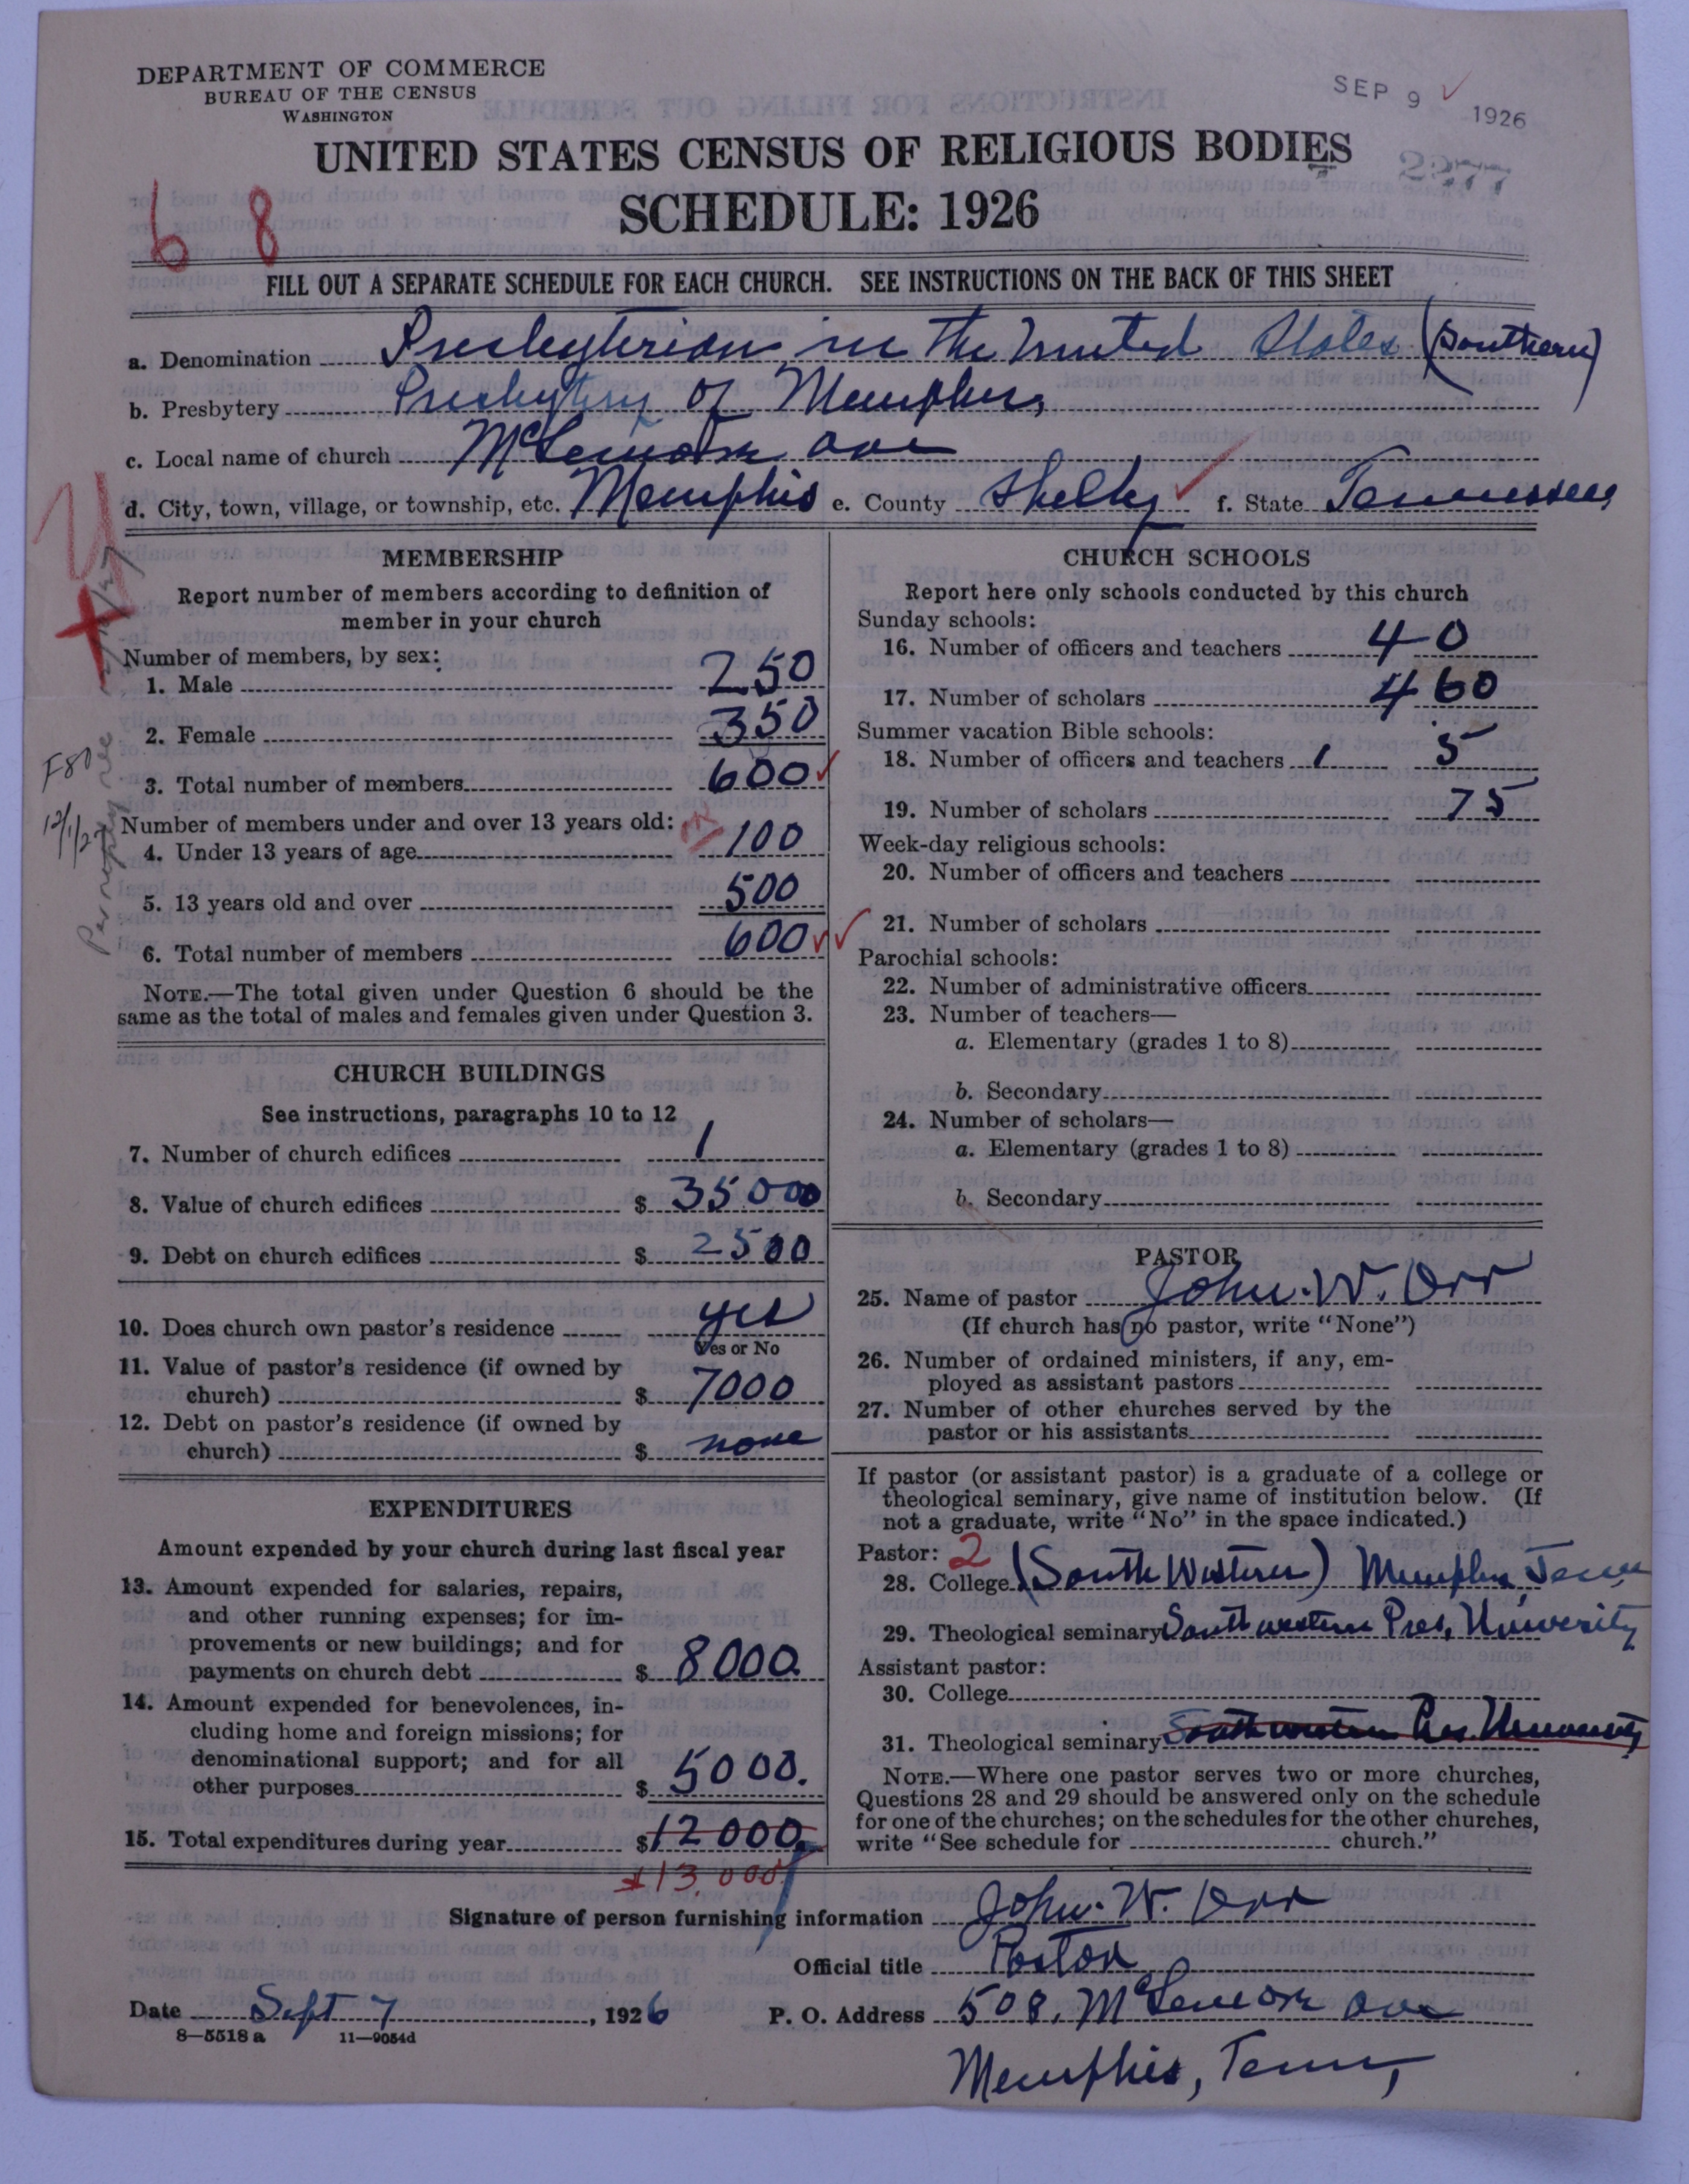 DEPARTMENT OF COMMERCE
BUREAU OF THE CENSUS
WASHINGTON
SEP 9 1926
UNITED STATES CENSUS OF RELIGIOUS BODIES
2277
SCHEDULE: 1926
6 8
FILL OUT A SEPARATE SCHEDULE FOR EACH CHURCH. SEE INSTRUCTIONS ON THE BACK OF THIS SHEET
a. Denomination Presbyterian in the United States (Southern)
b. Presbytery Presbytery of Memphis,
c. Local name of church McLemore ave
d. City, town, village, or township, etc. Memphis e. County Shelby f. State Tennessee
MEMBERSHIP
Report number of members according to definition of
member in your church
Number of members, by sex:
1. Male 250
2. Female 350
3. Total number of members 600
Number of members under and over 13 years old:
4. Under 13 years of age 100
5. 13 years old and over 500
6. Total number of members 600
NOTE.—The total given under Question 6 should be the
same as the total of males and females given under Question 3.
F80
12/1/27
CHURCH BUILDINGS
See instructions, paragraphs 10 to 12
7. Number of church edifices 1
8. Value of church edifices $ 35000
9. Debt on church edifices $ 2500
10. Does church own pastor's residence yes
Yes or No
11. Value of pastor's residence (if owned by
church) $ 7000
12. Debt on pastor's residence (if owned by
church) $ none
EXPENDITURES
Amount expended by your church during last fiscal year
13. Amount expended for salaries, repairs,
and other running expenses; for im-
provements or new buildings; and for
payments on church debt $ 8000.
14. Amount expended for benevolences, in-
cluding home and foreign missions; for
denominational support; and for all
other purposes $ 5000.
15. Total expenditures during year $ 12000.
13,000
CHURCH SCHOOLS
Report here only schools conducted by this church
Sunday schools:
16. Number of officers and teachers 40
17. Number of scholars 460
Summer vacation Bible schools:
18. Number of officers and teachers 1 5
19. Number of scholars 75
Week-day religious schools:
20. Number of officers and teachers
21. Number of scholars
Parochial schools:
22. Number of administrative officers
23. Number of teachers—
a. Elementary (grades 1 to 8)
b. Secondary
24. Number of scholars—
a. Elementary (grades 1 to 8)
b. Secondary
PASTOR
25. Name of pastor John. W. Orr
(If church has no pastor, write "None")
26. Number of ordained ministers, if any, em-
ployed as assistant pastors
27. Number of other churches served by the
pastor or his assistants
If pastor (or assistant pastor) is a graduate of a college or
theological seminary, give name of institution below. (If
not a graduate, write "No" in the space indicated.)
Pastor: 2
28. College (South Western) Memphis, Tenn
29. Theological seminary Southwestern Pres. University
Assistant pastor:
30. College
31. Theological seminary Southwestern Pres. University
NOTE.—Where one pastor serves two or more churches,
Questions 28 and 29 should be answered only on the schedule
for one of the churches; on the schedules for the other churches,
write "See schedule for church."
Signature of person furnishing information John. W. Orr
Official title Pastor
Date Sept 7, 1926 P. O. Address 508. McLemore ave
8—5518 a 11—9054d
Memphis, Tenn,